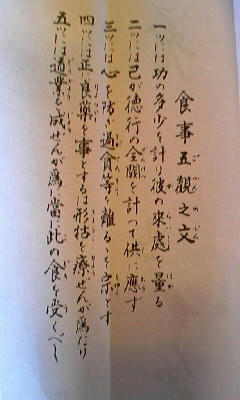 食事五觀之文
一ツには功の多少を計り彼の來處を量る
二ツには己が德行の全闕を計つて供に應ず
三ツには心を防ぎ過貪等を離るゝを宗とす
四ツには正に良藥を事とするは形枯を療ぜんが爲なり
五ツには道業を成ぜんが爲に當に此の食を受くべし